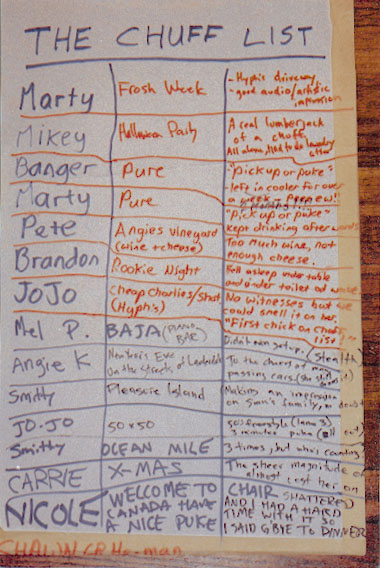 THE CHUFF LIST
Marty Frosh Week - Hyph's driveway
- good audio/artistic
impression
Mikey Halloween Party A real lumberjack
of a chuff.
All alone, had to do laundry
after
Banger Pure "pick up or puke"
left in cooler for over
a week
Marty Pure "pick up or puke"
kept drinking afterwards
Pete Angies vineyard
(wine + cheese) Too much wine, not
enough cheese.
Brandon Rookie Night Fell asleep under table
and under toilet
JoJo Cheap Charlies/Shot
(Hyph's) No witnesses but we
could smell it on her,
"First chick on chuff
list"
Mel P. BAJA (PIANO BAR) (Stealth)
Angie K New Year's Eve
On the streets of To the cheers of many
passing cars.
Smitty Pleasure Island Making an impression
on Sam's family, no doubt
JO-JO 50x50 50 freestyle (lane 3)
3 minutes puke
Smitty OCEAN MILE 3 times, but who's counting
CARRIE X-MAS The sheer magnitude of
almost cost her an
NICOLE WELCOME TO
CANADA HAVE
A NICE PUKE CHAIR SHATTERED
AND I HAD A HARD
TIME WITH IT SO
I SAID G'BYE TO DINNER